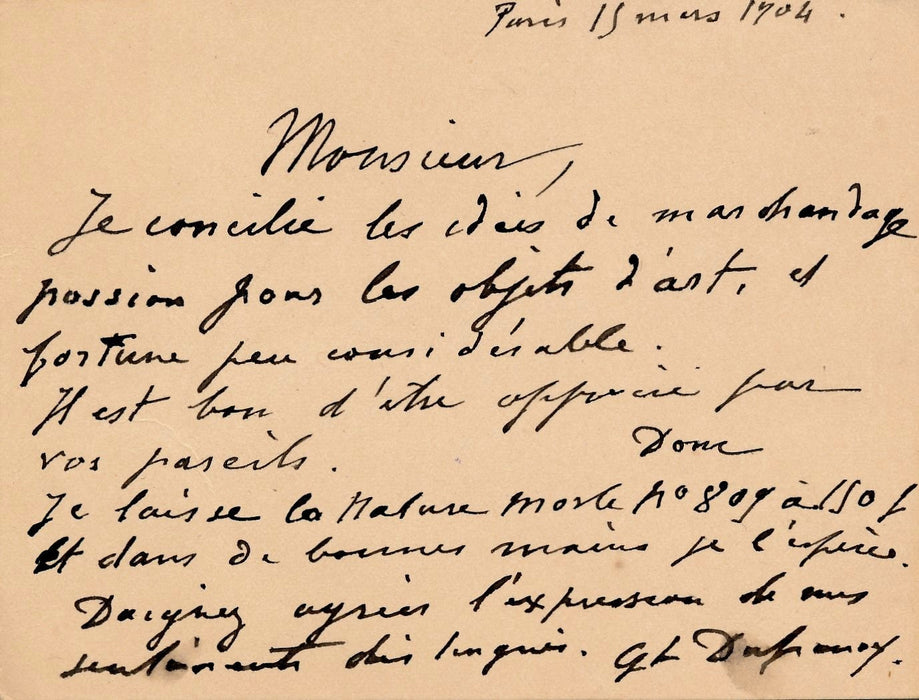 Paris 15 mars 1904.
Monsieur,
Je concilie les idées de marchandage
passion pour les objets d'art, et
fortune peu considérable.
Il est bon d'être apprécié par
vos pareils. Donc
Je laisse la Nature Morte No 809 à 150 f
Et dans de bonnes mains je l'espère.
Daignez agréer l'expression de mes
sentiments distingués. Dufrenoy.